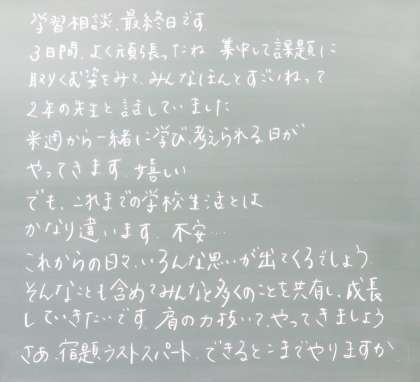 学習相談、最終日です。
3日間、よく頑張ったね 集中して課題に
取りくむ姿をみて、みんなほんとすごいねって
2年の先生と話していました
来週から一緒に学び、考えられる日が
やってきます。嬉しい
でも、これまでの学校生活とは
かなり違います。不安…
これからの日々、いろんな思いが出てくるでしょう。
そんなことも含めてみんなと多くのことを共有し、成長
していきたいです。肩の力抜いて、やってきましょう
さあ、宿題ラストスパート。できるとこまでやりますか